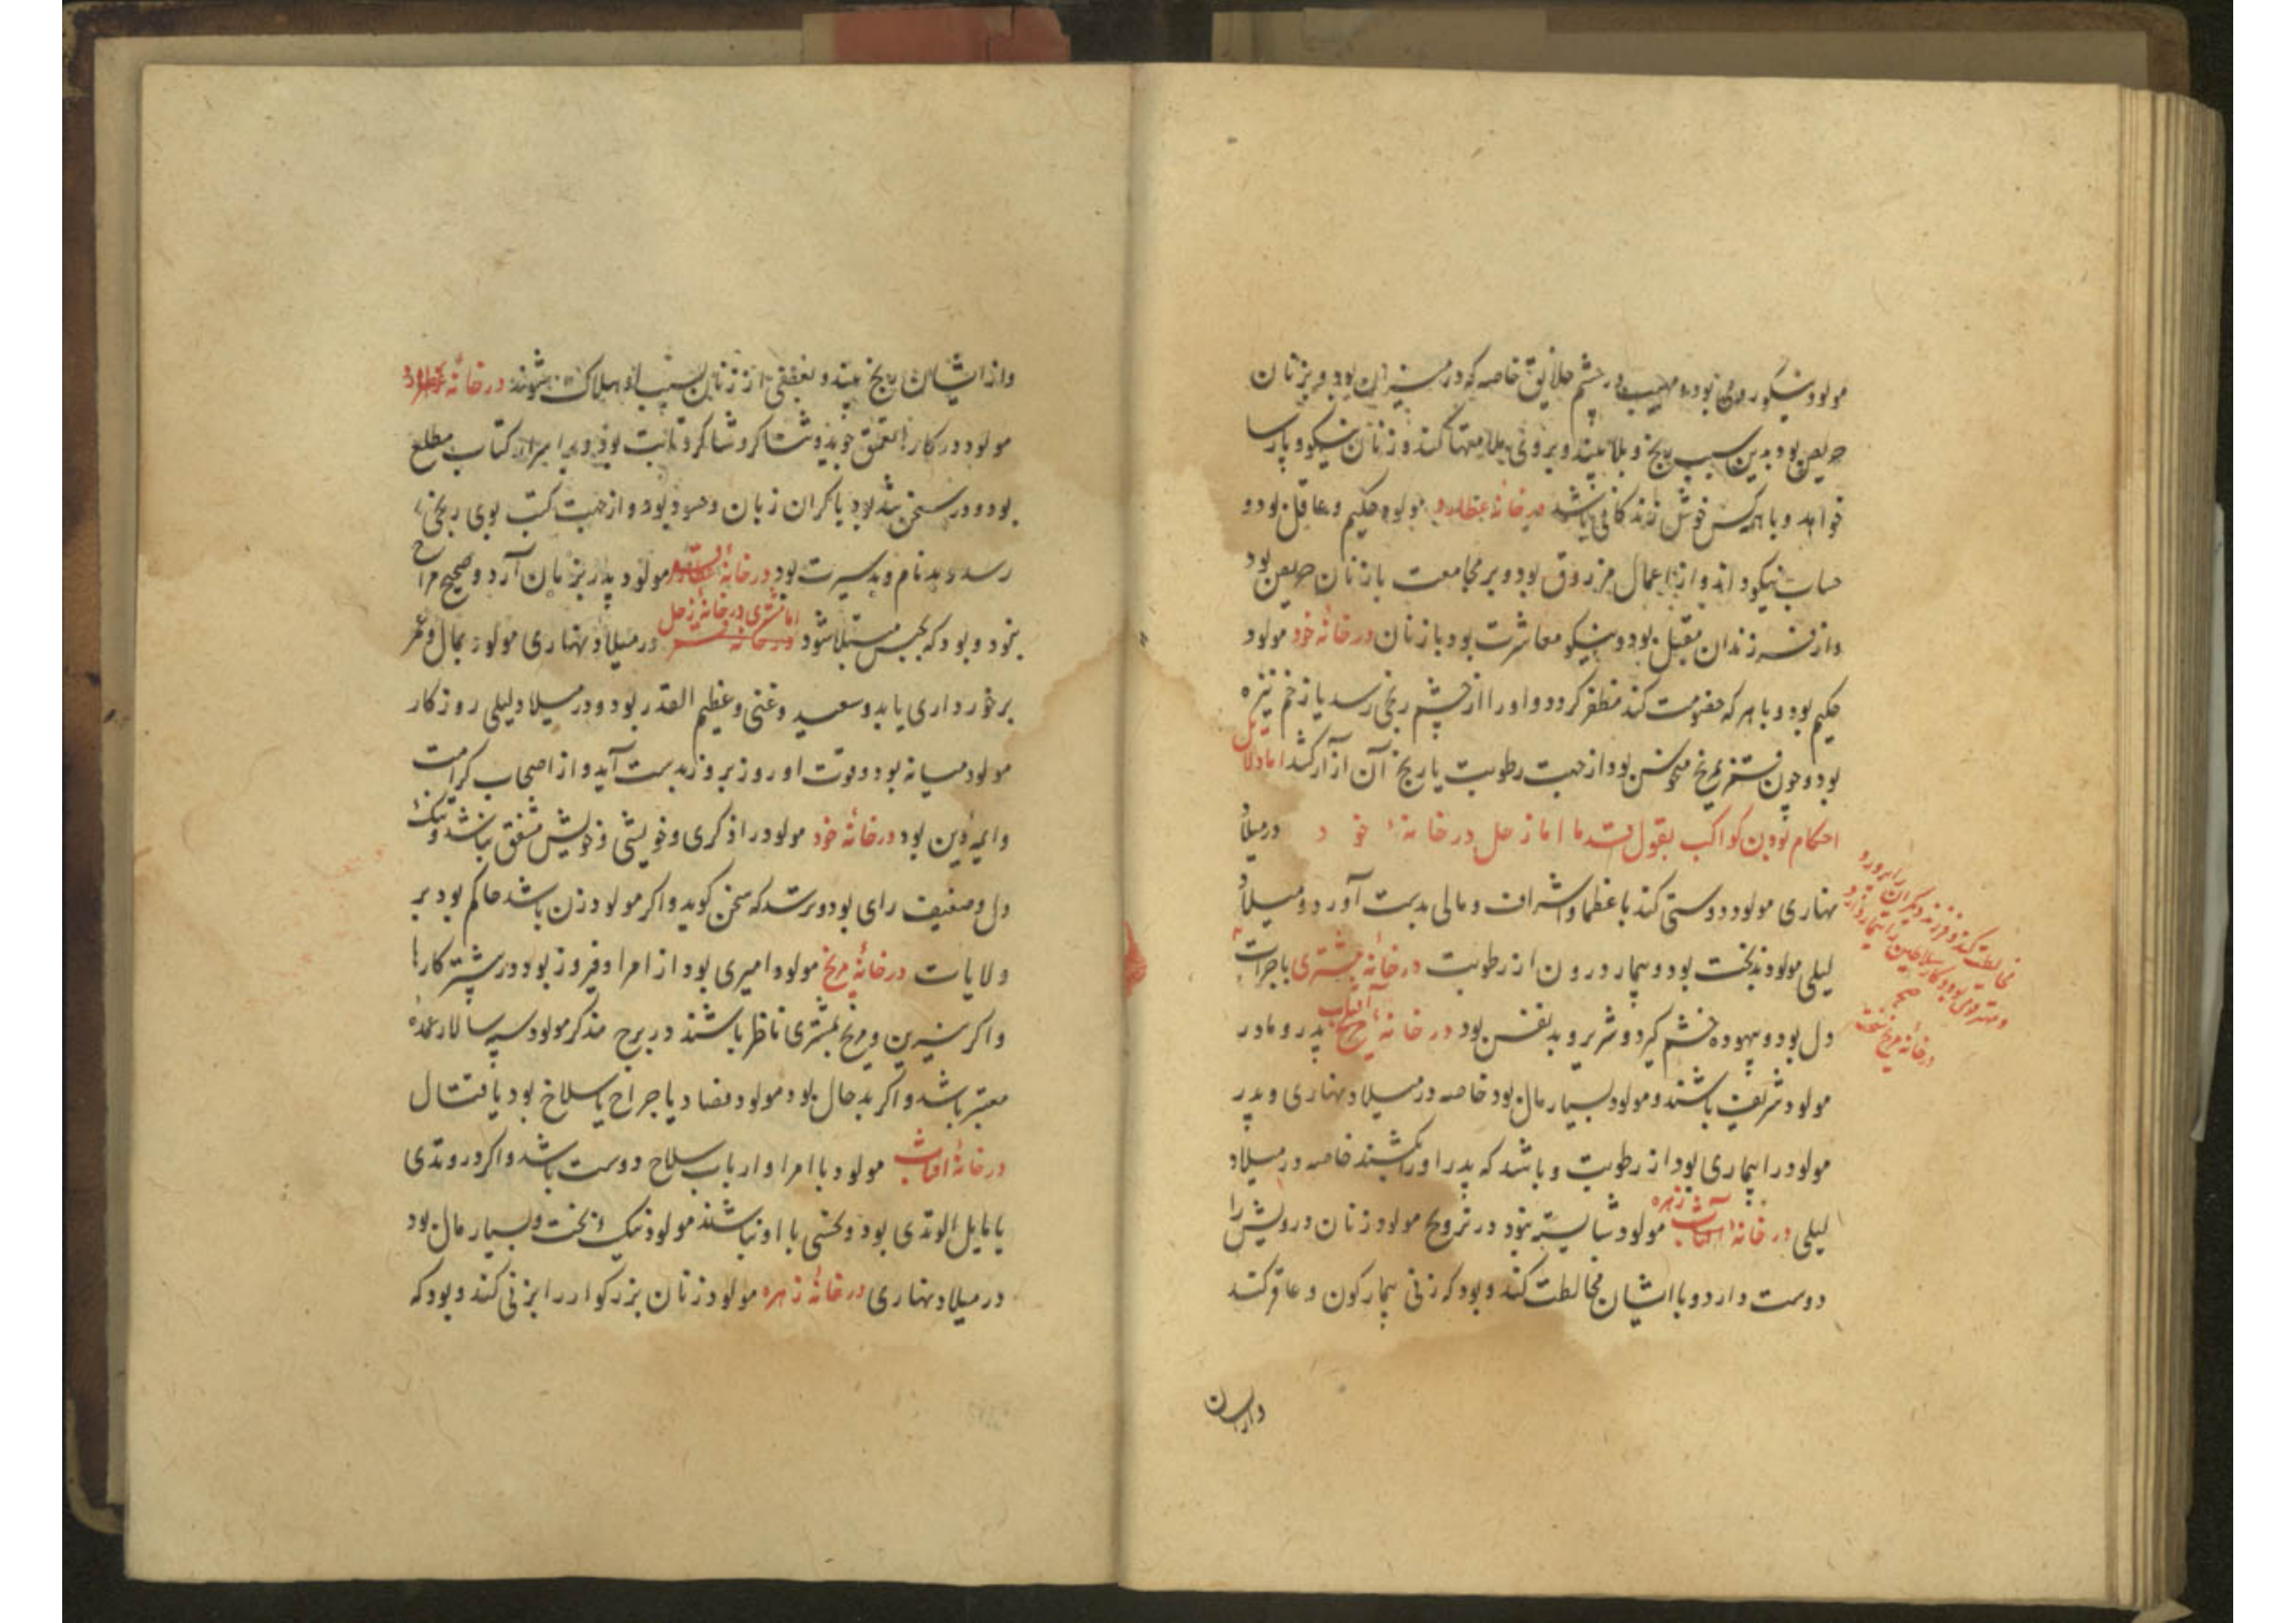 مولود نیکو روی بود و مهیب در چشم خلایق خاصه که در میزان بود و بر زنان
حریص بود بدین سبب رنج و بلا بیند و برو تهمتها کنند و زنان نیکو و پارسا
خواهد و با همه کس خوش زندکانی باشد در خانهٔ عطارد مولود حکیم و عاقل بود و
حساب نیکو داند و از اعمال مرزوق بود و بر مجامعت با زنان حریص بود
و از فرزندان مقبل بود و نیکو معاشرت بود با زنان در خانهٔ خود مولود
حکیم بود و با هر که خصومت کند مظفر کردد و او را از چشم رنجی رسد یا زخم نیزه
بود و چون قمر بمریخ منحوس بود از جهت رطوبت یا ریح آن آزار کشد اما دلایل
احکام بودن کواکب بقول قدما اما زحل در خانهٔ خود در میلاد
نهاری مولود دوستی کند با عظما و اشراف و مالی بدست آورد و در میلاد
لیلی مولود بدبخت بود و بیمار درون از رطوبت در خانهٔ مشتری با جراحت
دل بود و بیهوده خشم کیرد و شریر و بد نفس بود در خانهٔ آفتاب پدر و مادر
مولود شریف باشند و مولود بسیار مال بود خاصه در میلاد نهاری و پدر
مولود را بیماری بود از رطوبت و باشد که پدر او را بکشند خاصه در میلاد
لیلی در خانهٔ زهره مولود شایسته نبود در تزویج مولود زنان درویش را
دوست دارد و با ایشان مخالطت کند و بود که زنی بیمارکون و عاقر کند
مخالطت کند و فرزند دیکران را پرورد
و مهتر قوی بود و کار سلاطین را تیمار دارد
صح
در خانهٔ مریخ سخت
و از ایشان
و از ایشان رنج بیند و بعضی از زنان بسبب او هلاک شوند در خانهٔ عطارد
مولود در کارها تعمق جوید و شاکرد و ثابت بود و بر اسرار کتاب مطلع
بود و در سخن تند بود یا کران زبان و حسود بود و از جهت کتب بوی رنجی
رسد و بدنام و بد سیرت بود در خانهٔ قمر مولود پدر بزیان آرد و صحیح مزاج
نبود و بود که بحبس مبتلا شود اما مشتری در خانهٔ زحل در میلاد نهاری مولود بمال و عمر
برخورداری یابد و سعید و غنی و عظیم القدر بود و در میلاد لیلی روزکار
مولود میانه بود و قوت او روز بروز بدست آید و از اصحاب کرامت
و ایمهٔ دین بود در خانهٔ خود مولود را ذکری و خویشی و خویش مشفق نباشد و تنک
دل و ضعیف رای بود و ترسد که سخن کوید و اکر مولود زن باشد حاکم بود بر
ولایات در خانهٔ مریخ مولود امیری بود از امرا و فیروز بود در بیشتر کارها
و اکر نیرین و مریخ بمشتری ناظر باشند در برج مذکر مولود سپه سالار عمده
معتبر باشد و اکر بد حال بود مولود فصاد یا جراح یا سلاخ بود یا قتال
در خانهٔ آفتاب مولود با امرا و ارباب سلاح دوست باشد و اکر در وتدی
یا مایل الوتدی بود و نحسی با او نباشد مولود نیک بخت و بسیار مال بود
در میلاد نهاری در خانهٔ زهره مولود زنان بزرکوار را بزنی کند و بود که